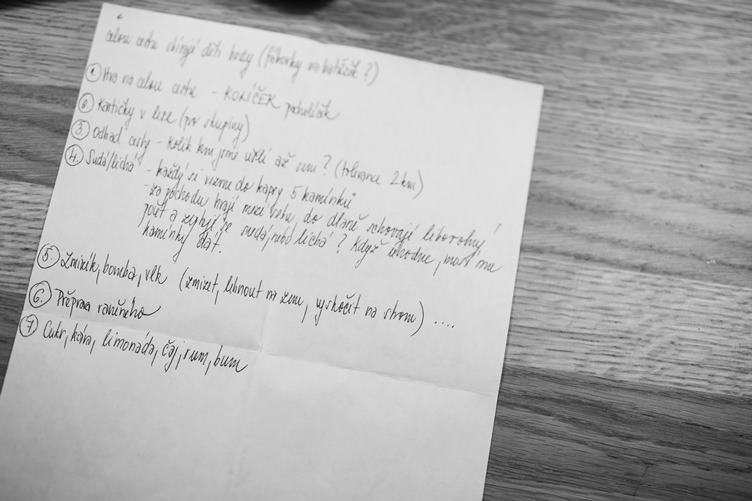 celou cestu sbírají děti body (fáborky na batůžek?)
① Hra na celou cestu - KONÍČEK pacholíček
② Kartičky v lese (po skupiny)
③ Odhad cesty - kolik km jsme ušli až sem? (tolerance 2 km)
④ Sudá/lichá - každý si vezme do kapsy 5 kamínků
- za pochodu hrají mezi sebou, do dlaně schovají libovolný
počet a zeptají se sudá, nebo lichá? Když uhodne, musí mu
kamínky dát.
⑤ Zmizík, bomba, vlk (zmizet, lehnout na zem, vyskočit na strom) ....
⑥ Přeprava raněného
⑦ Cukr, káva, limonáda, čaj, rum, bum